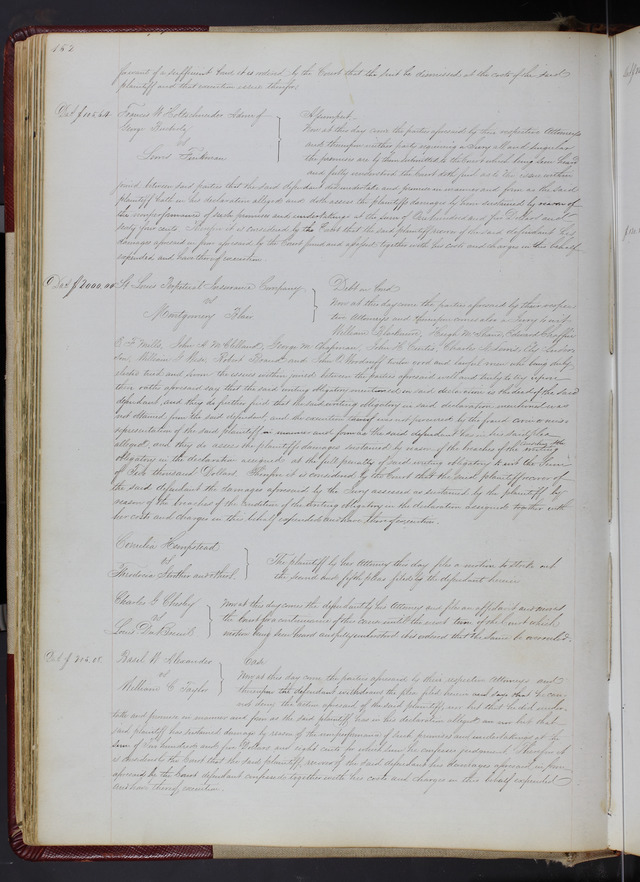 152
of a sufficient bond it is ordered by the Court that the suit be dismissed at the costs of the said
plaintiff and that execution issue therefor.
Francis W Admr of Assumpsit
George Now at this day come the parties aforesaid by their respective Attorneys
vs and thereupon neither party requiring a Jury all and singular
Louis the premises are by them submitted to the Court which being seen heard
and fully understood the Court doth find as to the issue within
joined between said parties that the said defendant did undertake and promise in manner and form as the said
plaintiff hath in his declaration alleged and doth assess the plaintiffs damages by him sustained by reason of
the nonperformance of such promises and undertakings at the sum of One hundred and five Dollars and
sixty four cents. Therefore it is considered by the Court that the said plaintiff recover of the said defendant his
damages aforesaid in form aforesaid by the Court found and assessed together with his costs and charges in this behalf
expended and have thereof execution.
Debt $2000.00 St Louis Perpetual Insurance Company Debt on Bond
vs Now at this day come the parties aforesaid by their respec
Montgomery Blair tive Attorneys and thereupon comes also a Jury to wit
William Hugh Edward
Mills, John A McClelland, George M Chapman, John H Charles
William Robert Brand and John twelve good and lawful men who being duly
elected tried and sworn the issues within joined between the parties aforesaid well and truly to try upon
their oaths aforesaid say that the said writing obligatory mentioned in said declaration is the deed of the said
defendant, and they do further find that the said writing obligatory in said declaration mentioned was
not obtained from the said defendant, and the execution thereof was not procured by the fraud covin or mis
representation of the said plaintiff in manner and form as the said defendant has in his said plea
alleged, and they do assess the plaintiffs damages sustained by reason of the breaches of the condition of the writing
obligatory in the declaration assigned at the full penalty of said writing obligatory to wit the Sum
of Two thousand Dollars. Therefore it is considered by the Court that the said plaintiff recover of
the said defendant the damages aforesaid by the Jury assessed as sustained by the plaintiff by
reason of the breaches of the condition of the writing obligatory in the declaration assigned together with
her costs and charges in this behalf expended and have thereof execution.
Cornelia Hempstead
vs The plaintiff by her Attorney this day files a motion to strike out
Theodosia Strother and others the second and fifth pleas filed by the defendant herein
Charles G Now at this day comes the defendant by his Attorney and files an affidavit and moves
vs the Court for a continuance of this cause until the next term of the Court which
Louis motion being seen heard and fully understood it is ordered that the same be overruled.
Basil W Alexander Case
vs Now at this day come the parties aforesaid by their respective Attorneys and
William C Taylor thereupon the defendant withdraws the plea filed herein and says that he can
not deny the action aforesaid of the said plaintiff, nor but that he did under
take and promise in manner and form as the said plaintiff has in his declaration alleged nor but that
said plaintiff has sustained damage by reason of the nonperformance of such promises and undertakings at the
Sum of hundred and five Dollars and eight cents for which sum he confesses judgment. Therefore it
is considered by the Court that the said plaintiff, recover of the said defendant his damages aforesaid in form
aforesaid by the defendant confessed together with his costs and charges in this behalf expended
and have thereof execution.